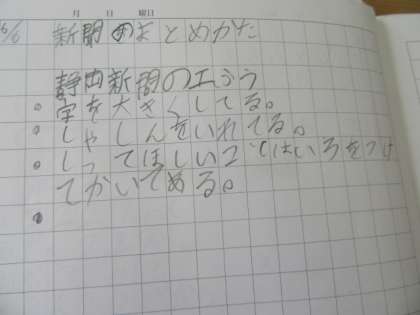 月 日 曜日
6/6 新聞のまとめかた
静岡新聞の工ふう
字を大きくしてる。
しゃしんをいれてる。
しってほしいことはいろをつけ
てかいてある。